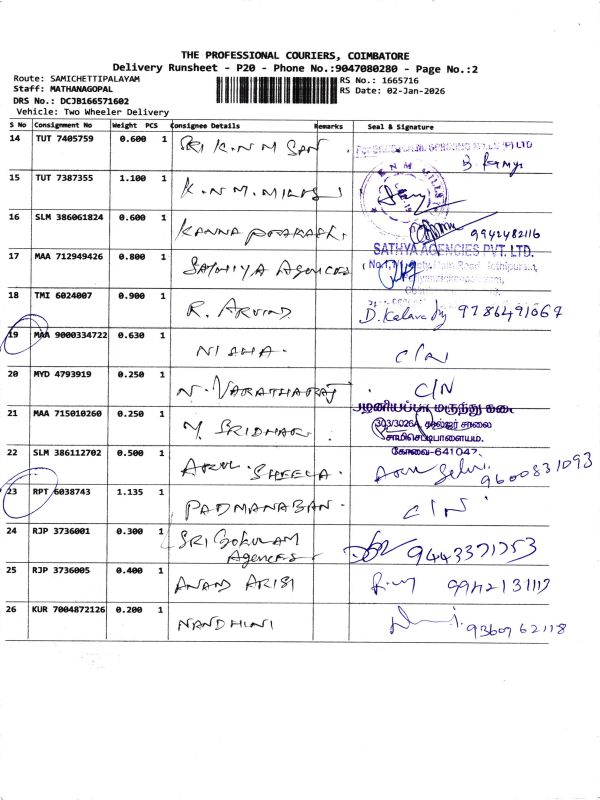 THE PROFESSIONAL COURIERS, COIMBATORE
Delivery Runsheet - P20 - Phone No.:9047080280 - Page No.:2
Route: SAMICHETTIPALAYAM
Staff: MATHANAGOPAL
DRS No.: DCJB166571602
Vehicle: Two Wheeler Delivery
RS No.: 1665716
RS Date: 02-Jan-2026
S No Consignment No Weight PCS Consignee Details Remarks Seal & Signature
14 TUT 7405759 0.600 1 SRI K.N M SAN
15 TUT 7387355 1.100 1 K.N M. MILLS K N M MILLS
16 SLM 386061824 0.600 1 KANNA PRAKASH. 9942482116
17 MAA 712949426 0.800 1 SATHIYA Agencies SATHYA AGENCIES PVT. LTD.
18 TMI 6024007 0.900 1 R. ARVIND D. Kalava 9786491067
19 MAA 9000334722 0.630 1 NISHA. C/N
20 MYD 4793919 0.250 1 N. VARATHARAJ. C/N
21 MAA 715010260 0.250 1 M. SRIDHAR பழனியப்பா மருந்து கடை
303/3026A, தடாகம் சாலை
சாமிசெட்டிபாளையம்.
கோவை-641047.
22 SLM 386112702 0.500 1 ARUL SHEELA. 9600831093
23 RPT 6038743 1.135 1 PADMANABAN. C/N
24 RJP 3736001 0.300 1 SRI GOKULAM
Agencies 9443371753
25 RJP 3736005 0.400 1 ANAND ARISI 9942131117
26 KUR 7004872126 0.200 1 NANDHINI 9360962118